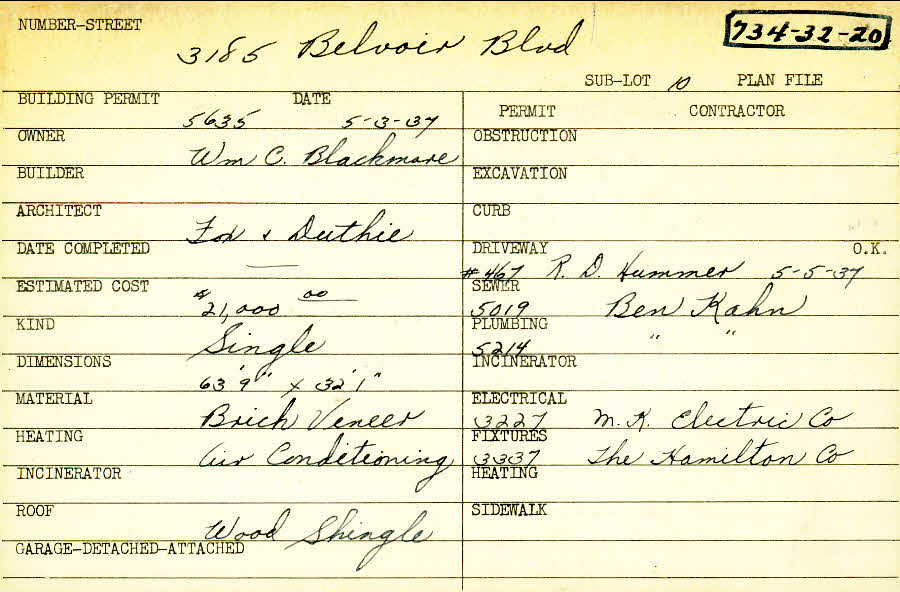 NUMBER-STREET
3185 Belvoir Blvd
734-32-20
SUB-LOT 10 PLAN FILE
BUILDING PERMIT DATE
5635 5-3-37
OWNER
Wm C. Blackmore
BUILDER
ARCHITECT
Fox & Duthie
DATE COMPLETED
—
ESTIMATED COST
$21,000 00
KIND
Single
DIMENSIONS
63'9" x 32'1"
MATERIAL
Brick Veneer
HEATING
Air Conditioning
INCINERATOR
ROOF
Wood Shingle
GARAGE-DETACHED-ATTACHED
PERMIT CONTRACTOR
OBSTRUCTION
EXCAVATION
CURB
DRIVEWAY O.K.
#467 R. D. Hummer 5-5-37
SEWER
5019 Ben Kahn
PLUMBING
5214 " "
INCINERATOR
ELECTRICAL
3227 M. K. Electric Co
FIXTURES
3337 The Hamilton Co
HEATING
SIDEWALK